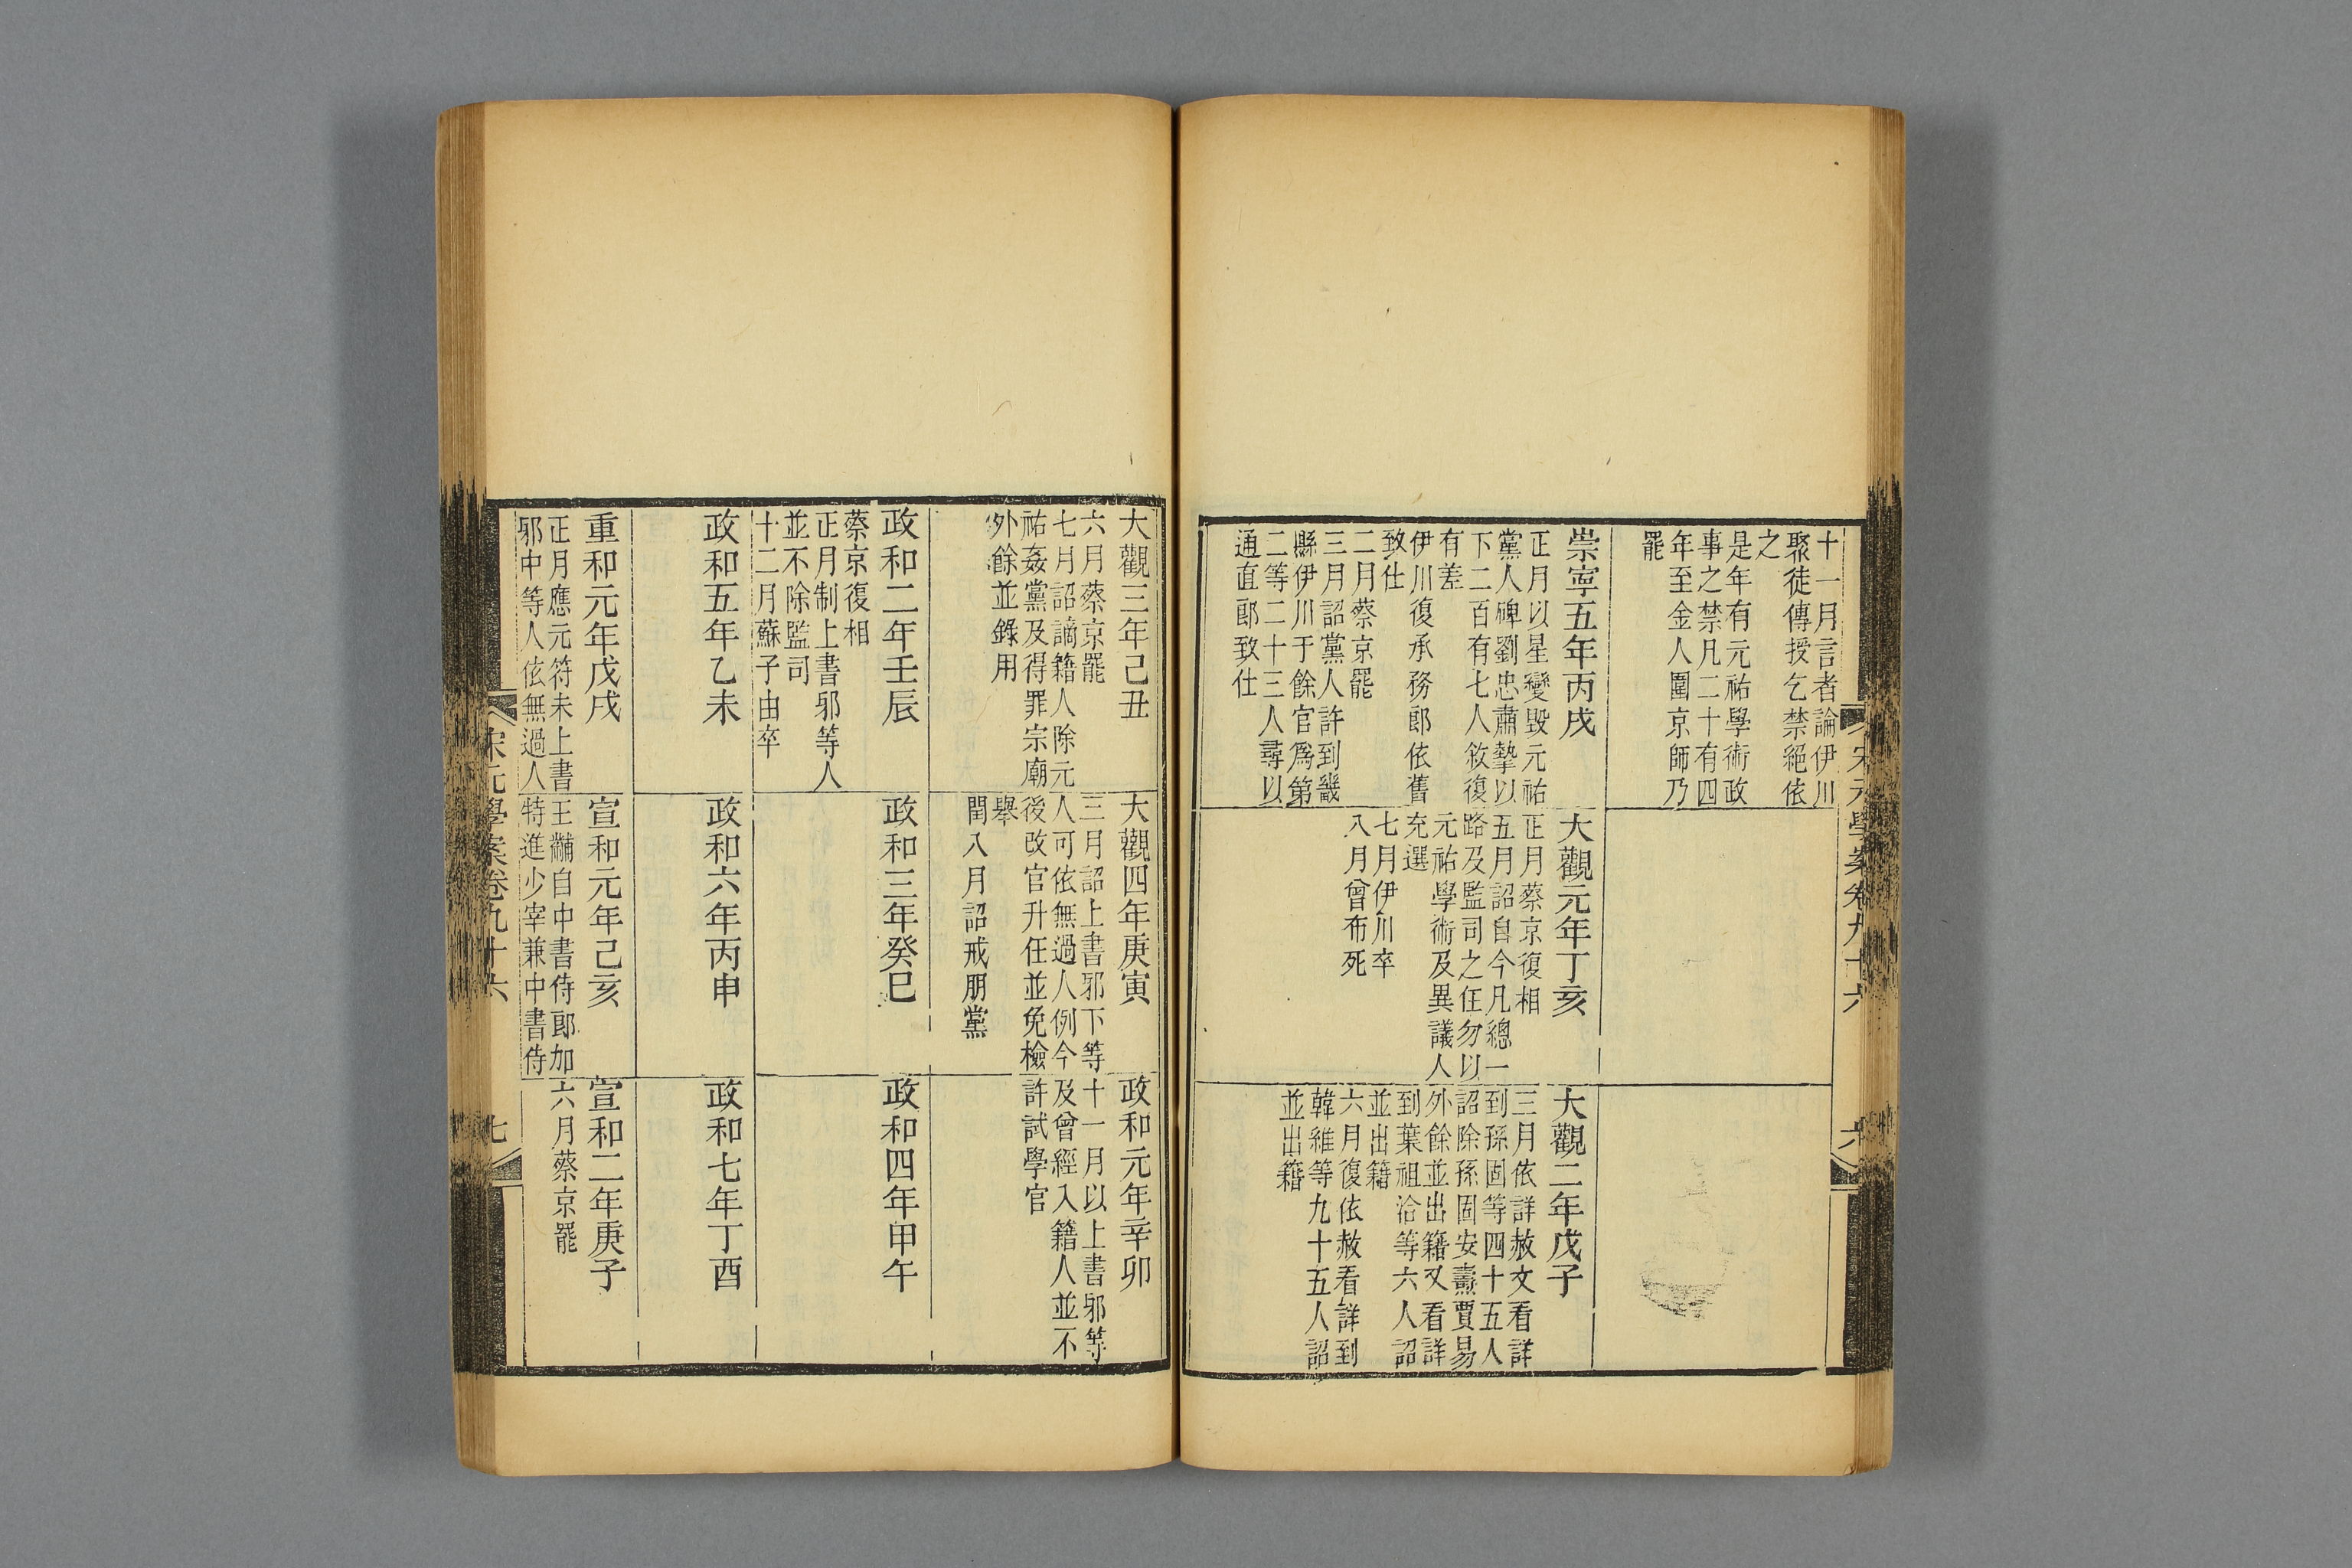 十一月言者論伊川
聚徒傳授乞禁絕依
之
是年有元祐學術政
事之禁凡二十有四
年至金人圍京師乃
罷
崇寧五年丙戌
正月以星變毀元祐
黨人碑劉忠肅摯以
下二百有七人敘復
有差
伊川復承務郎依舊
致仕
二月蔡京罷
三月詔黨人許到畿
縣伊川于餘官爲第
二等二十三人尋以
通直郎致仕
大觀元年丁亥
正月蔡京復相
五月詔自今凡總一
路及監司之任勿以
元祐學術及異議人
充選
七月伊川卒
八月曾布死
大觀二年戊子
三月依詳赦文看詳
到孫固等四十五人
詔除孫固安燾賈易
外餘並出籍又看詳
到葉祖洽等六人詔
並出籍
六月復依赦看詳到
韓維等九十五人詔
並出籍
宋元學案卷九十六
六
大觀三年己丑
六月蔡京罷
七月詔謫籍人除元
祐姦黨及得罪宗廟
外餘並錄用
大觀四年庚寅
三月詔上書邪下等
人可依無過人例今
後改官升任並免檢
舉
閏八月詔戒朋黨
政和元年辛卯
十一月以上書邪等
及曾經入籍人並不
許試學官
政和二年壬辰
蔡京復相
正月制上書邪等人
並不除監司
十二月蘇子由卒
政和三年癸巳
政和四年甲午
政和五年乙未
政和六年丙申
政和七年丁酉
重和元年戊戌
正月應元符末上書
邪中等人依無過人
宣和元年己亥
王黼自中書侍郎加
特進少宰兼中書侍
宣和二年庚子
六月蔡京罷
宋元學案卷九十六
七